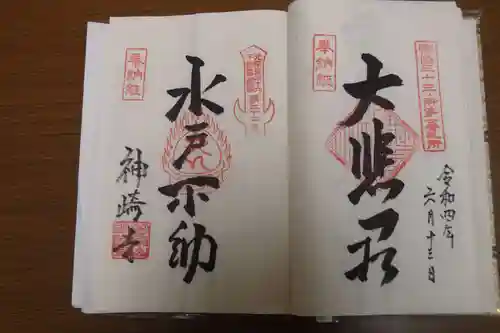 奉納証
大悲殿
令和四年
六月十三日
奉納経
水戸不動
神崎寺